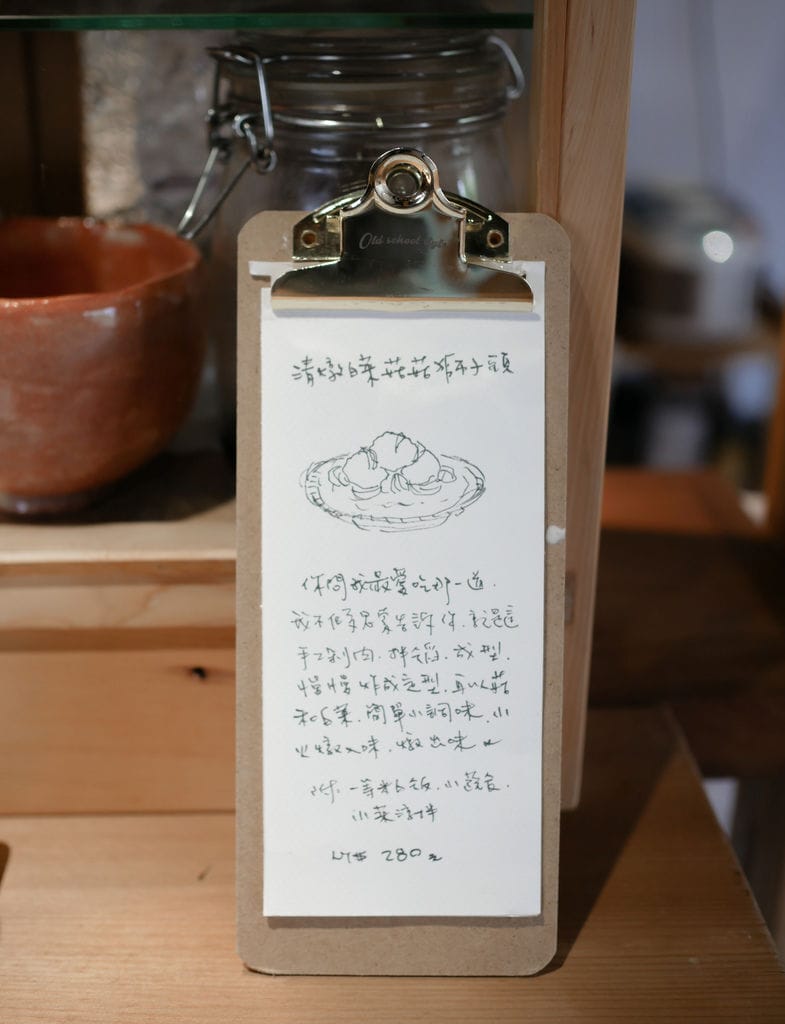 Old school
清燉白菜菇菇獅子頭
你問我最愛吃那一道.
我不假思索告訴你.就是這
手工剁肉.拌餡.成型.
慢慢炸成定型.再以菇
和白菜.簡單小調味.小
火燉入味.燉出味
附.一等米白飯.小蔬食.
小菜涼拌
NT$ 280元